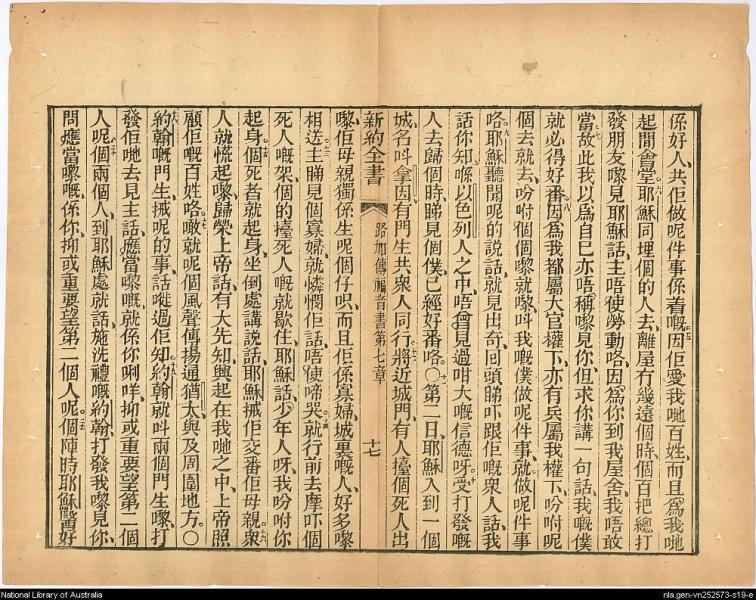 係好人、共佢做呢件事係着嘅、因佢愛我哋百姓、而且爲我哋
起間會堂、耶穌同埋個的人去、離屋冇幾遠個時、個百把總打
發朋友嚟見耶穌話、主唔使勞動咯、因爲你到我屋舍、我唔敢
當、故此我以爲自己亦唔稱嚟見你、但求你講一句話、我嘅僕
就必得好番、因爲我都屬大官權下、亦有兵屬我權下、吩咐呢
個去就去、吩咐個個嚟就嚟、叫我嘅僕做呢件事、就做呢件事
咯、耶穌聽聞呢的說話、就見出奇、回頭睇吓跟佢嘅衆人話、我
話你知、喺以色列人之中、唔曾見過咁大嘅信德呀、受打發嘅
人去歸個時、睇見個僕、已經好番咯、○第二日、耶穌入到一個
城、名叫拿因、有門生共衆人同行、將近城門、有人擡個死人出
新約全書 路加傳福音書第七章 十七
嚟、佢母親獨係生呢個仔呮、而且佢係寡婦、城裏嘅人、好多嚟
相送、主睇見個寡婦、就憐憫佢話、唔使啼哭、就行前去摩吓個
死人嘅架、個的擡死人嘅就歇住、耶穌話、少年人呀、我吩咐你
起身、個死者就起身、坐倒處講說話、耶穌㧜佢交番佢母親、衆
人就慌起嚟、歸榮上帝話、有大先知興起在我哋之中、上帝照
顧佢嘅百姓咯、噉就呢個風聲傳揚通猶太與及周圍地方、○
約翰嘅門生、㧜呢的事話嗮過佢知、約翰就叫兩個門生嚟、打
發佢哋去見主話、應當嚟嘅、就係你唎咩、抑或重要望第二個
人呢、個兩個人、到耶穌處就話、施洗禮嘅約翰、打發我嚟見你、
問應當嚟嘅、係你抑或重要望第二個人呢、個陣時耶穌醫好